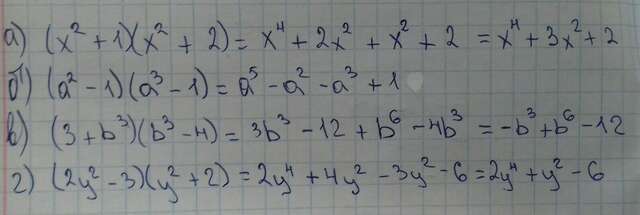 а) (x² + 1)(x² + 2) = x⁴ + 2x² + x² + 2 = x⁴ + 3x² + 2
б) (a² - 1)(a³ - 1) = a⁵ - a² - a³ + 1
в) (3 + b³)(b³ - 4) = 3b³ - 12 + b⁶ - 4b³ = -b³ + b⁶ - 12
г) (2y² - 3)(y² + 2) = 2y⁴ + 4y² - 3y² - 6 = 2y⁴ + y² - 6